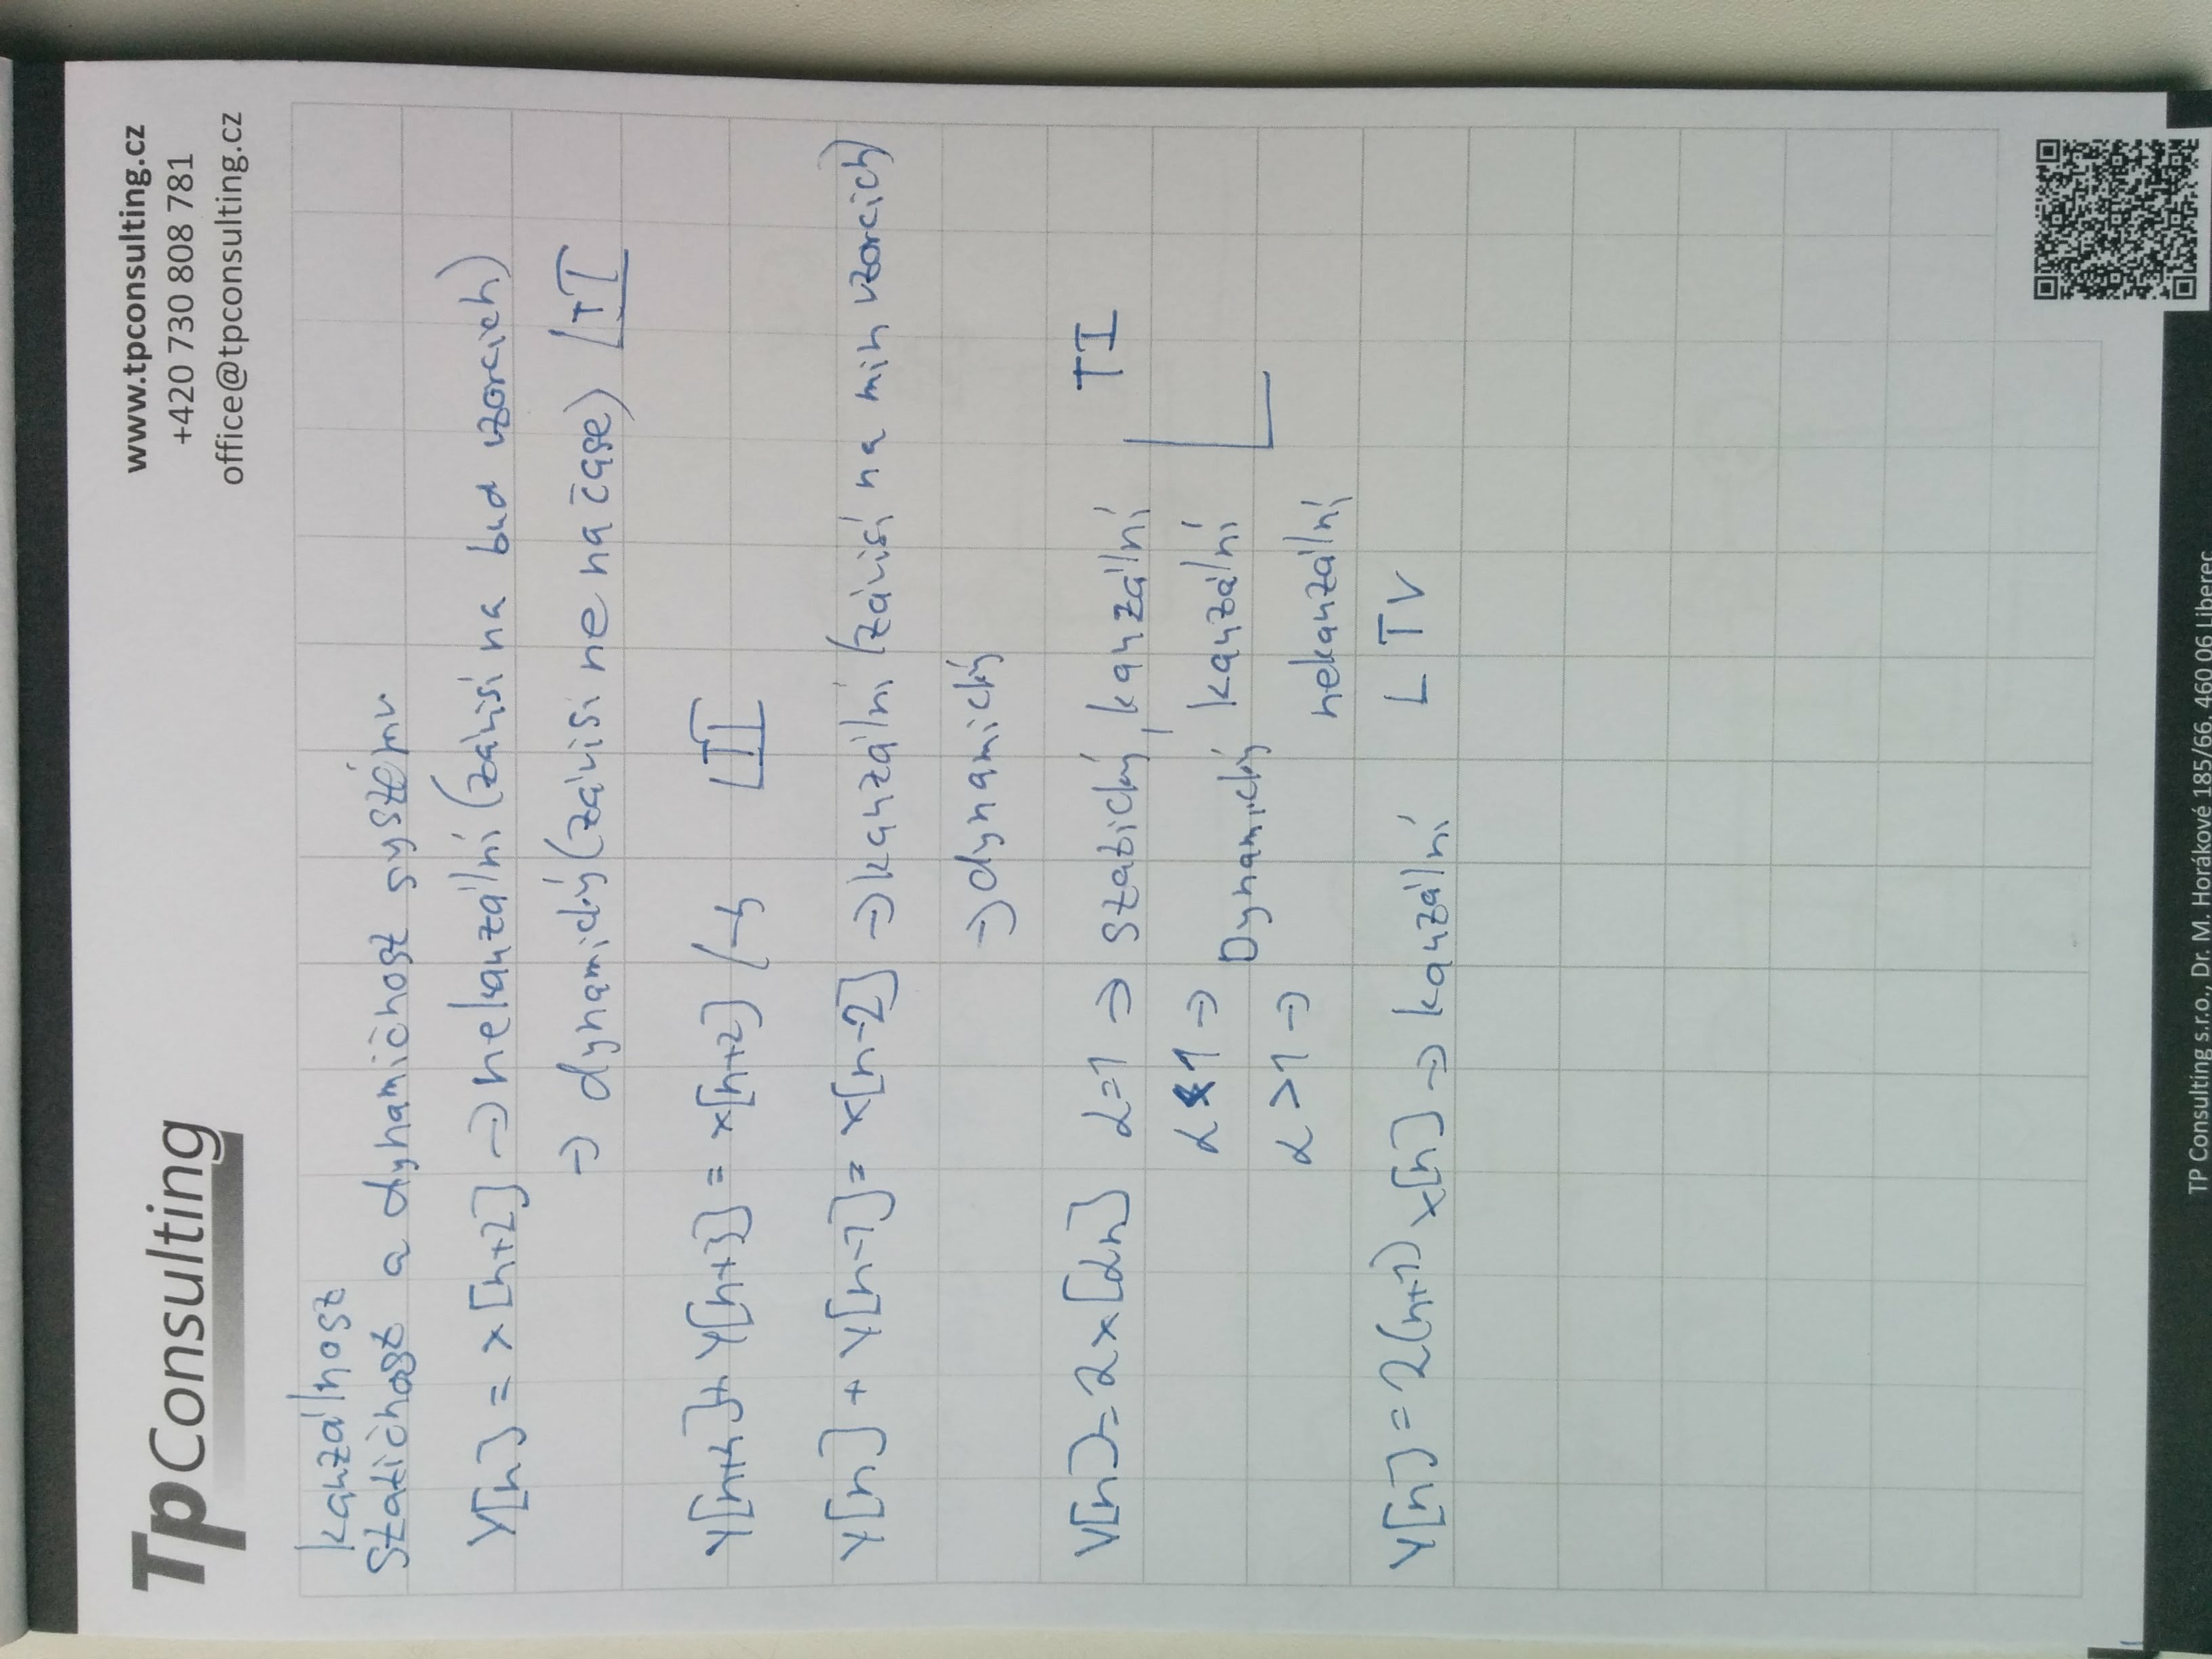 TpConsulting
www.tpconsulting.cz
+420 730 808 781
office@tpconsulting.cz
kauzálnost
Statičnost a dynamičnost systému
Y[n] = x[n+2] → nekauzální (závisí na bud vzorcích)
→ dynamický (závisí ne na čase) LTI
Y[n+4] + Y[n+3] = x[n+2] /-4 LTI
Y[n] + Y[n-1] = x[n-2] → kauzální (závisí na min vzorcích)
→ dynamický
Y[n] = 2x[αn] α=1 → statický, kauzální TI
α<1 → Dynamický kauzální L
α>1 → nekauzální
Y[n] = 2(n+1) x[n] → kauzální LTV
TP Consulting s.r.o., Dr. M. Horákové 185/66, 460 06 Liberec